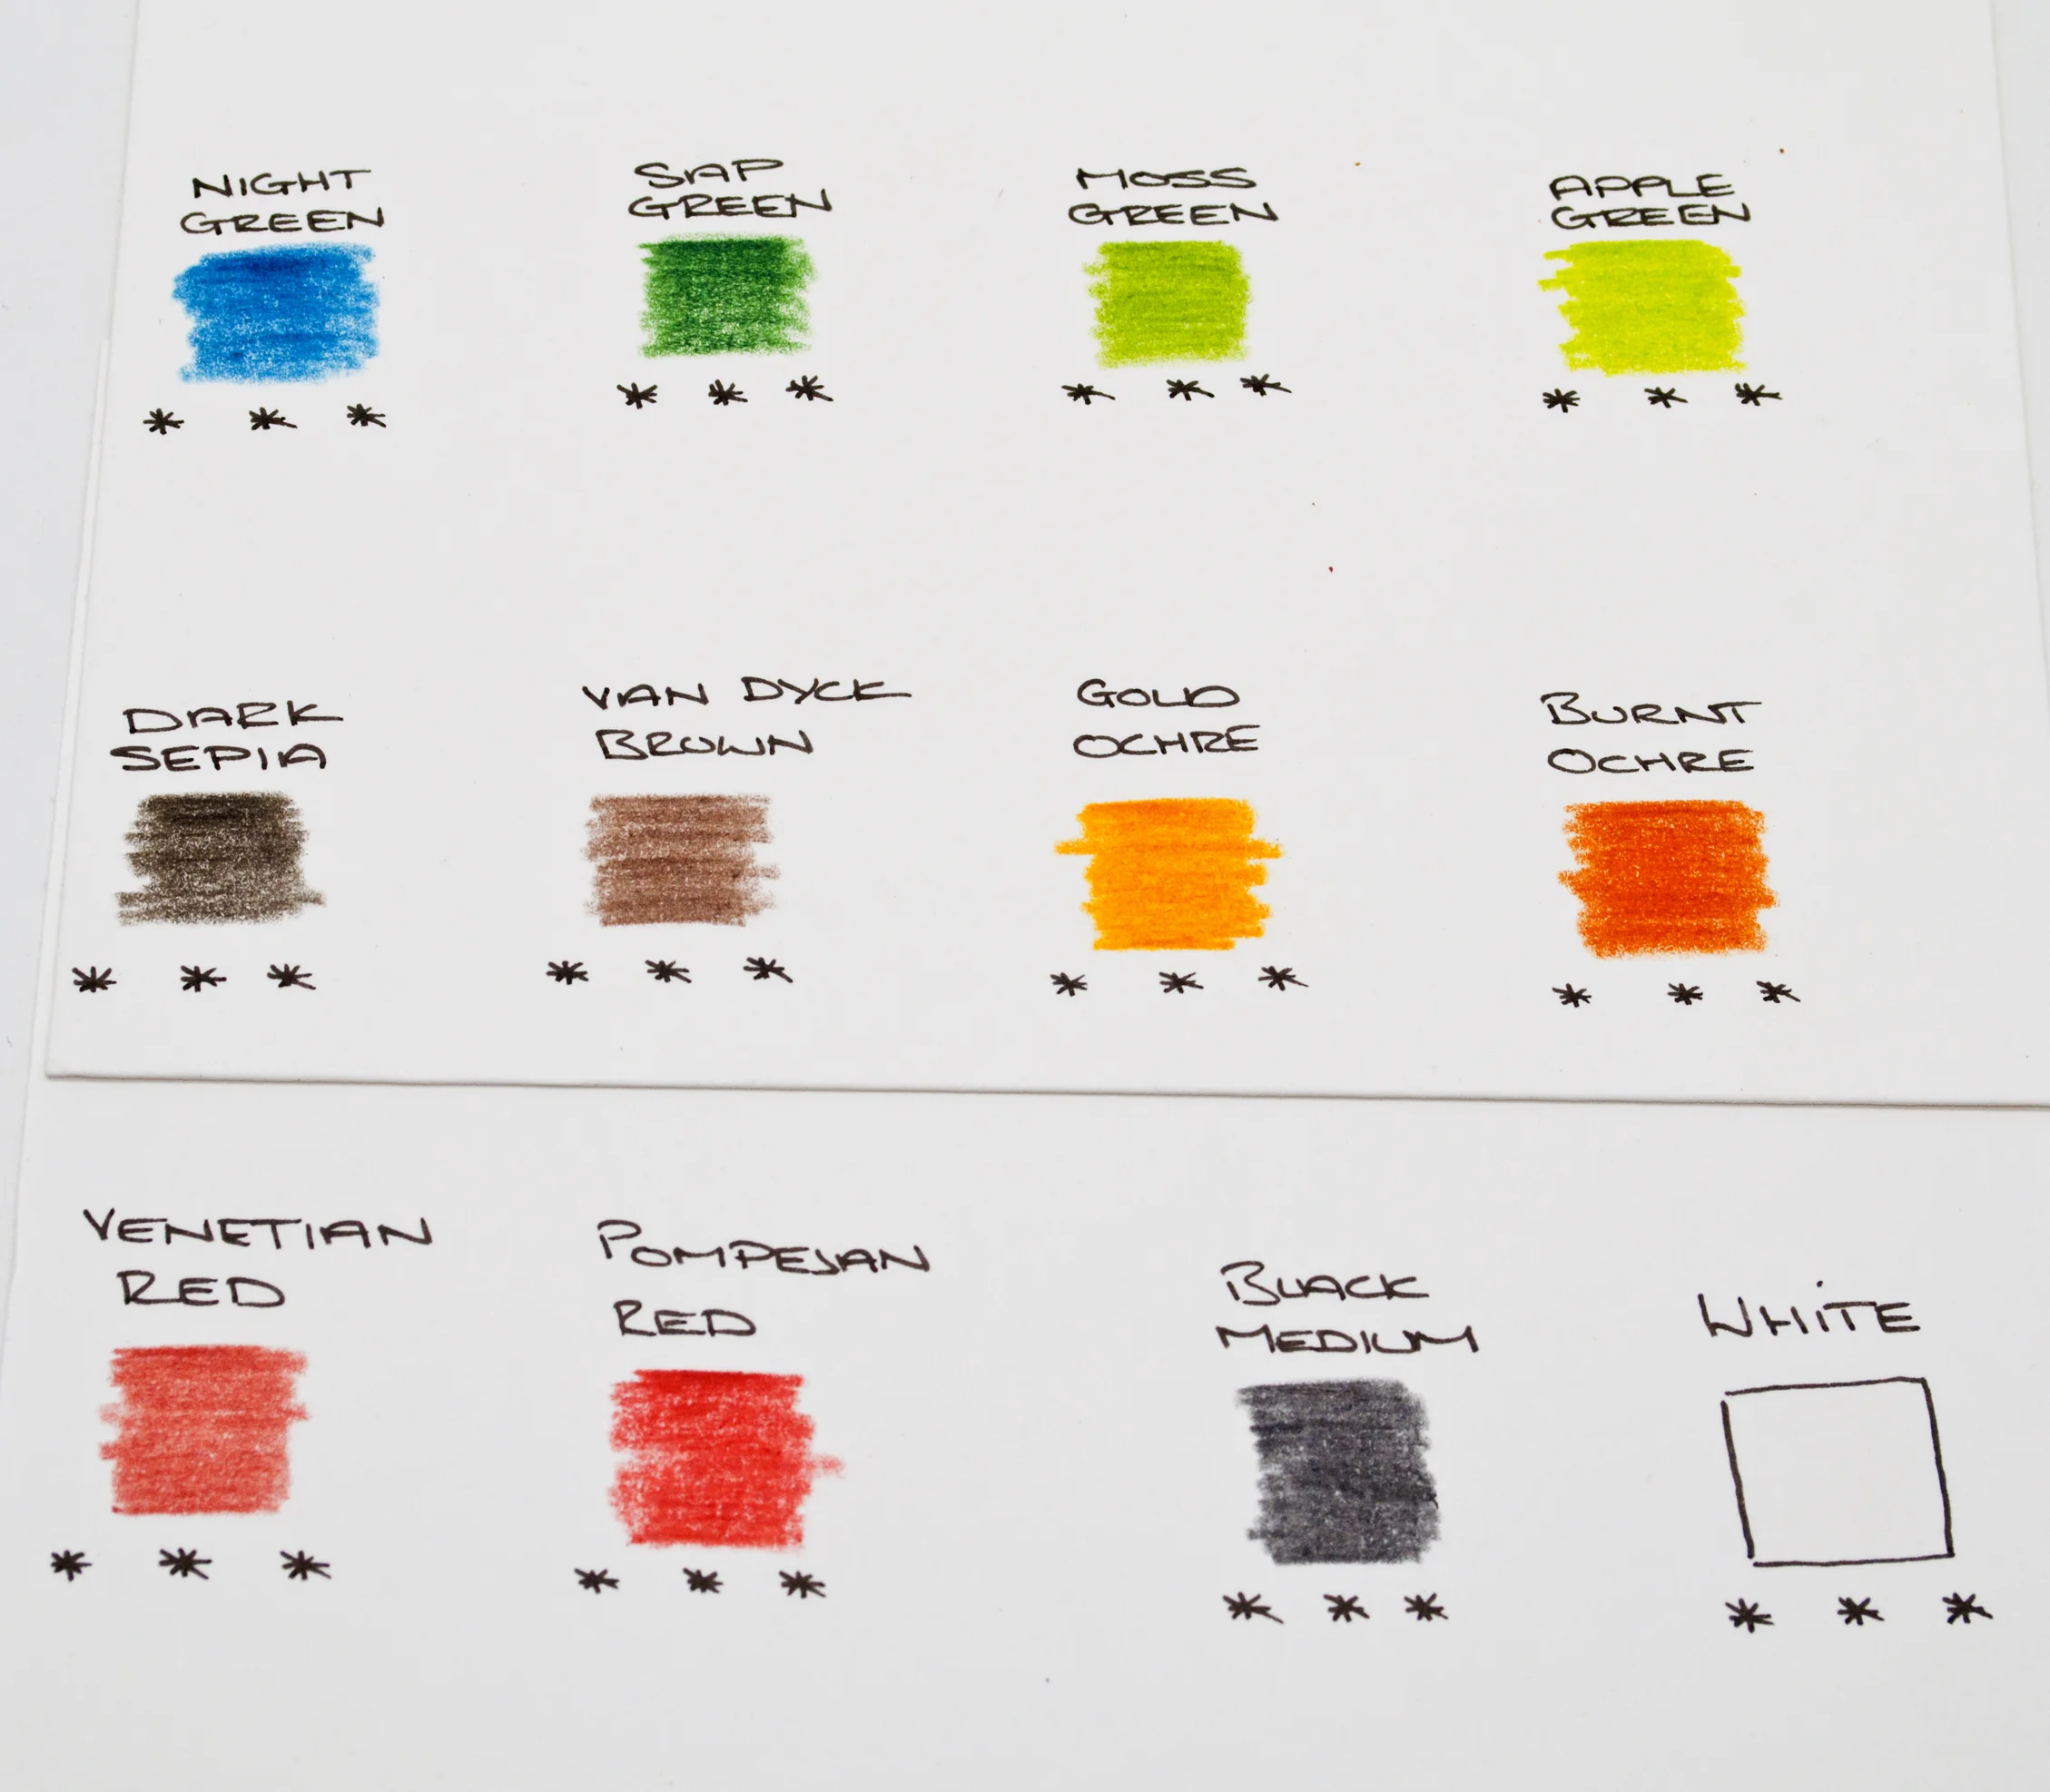 NIGHT
GREEN
* * *
SAP
GREEN
* * *
MOSS
GREEN
* * *
APPLE
GREEN
* * *
DARK
SEPIA
* * *
VAN DYCK
BROWN
* * *
GOLD
OCHRE
* * *
BURNT
OCHRE
* * *
VENETIAN
RED
* * *
POMPEJAN
RED
* * *
BLACK
MEDIUM
* * *
WHiTE
* * *